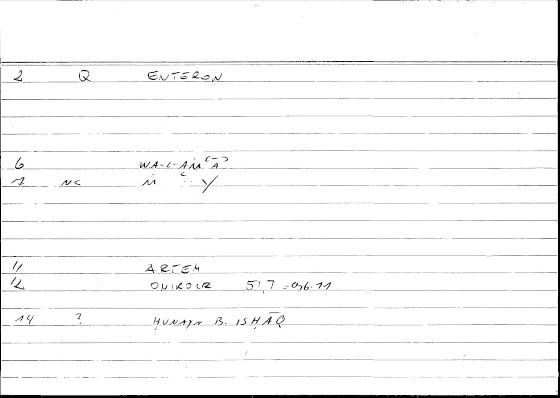 2 Q ENTERON
6 WA-L-AM(-A)
7 NC M Y
11 ARTEM
12 ONIROCR 51,7 -
14 ? ḤUNAYN B. ISḤĀQ